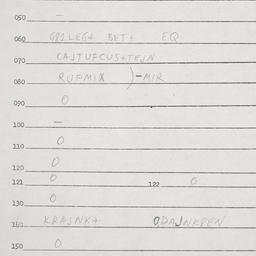 050 —
060 GP1LEG+ BET+ EQ
070 CAJTUFCUS+TEJN
080 RUFMIX )-MIR
090 O
100 —
110 O
120 O
121 O 122 O
130 O
140 KRAJNK+ ODAJNKPEN
150 O